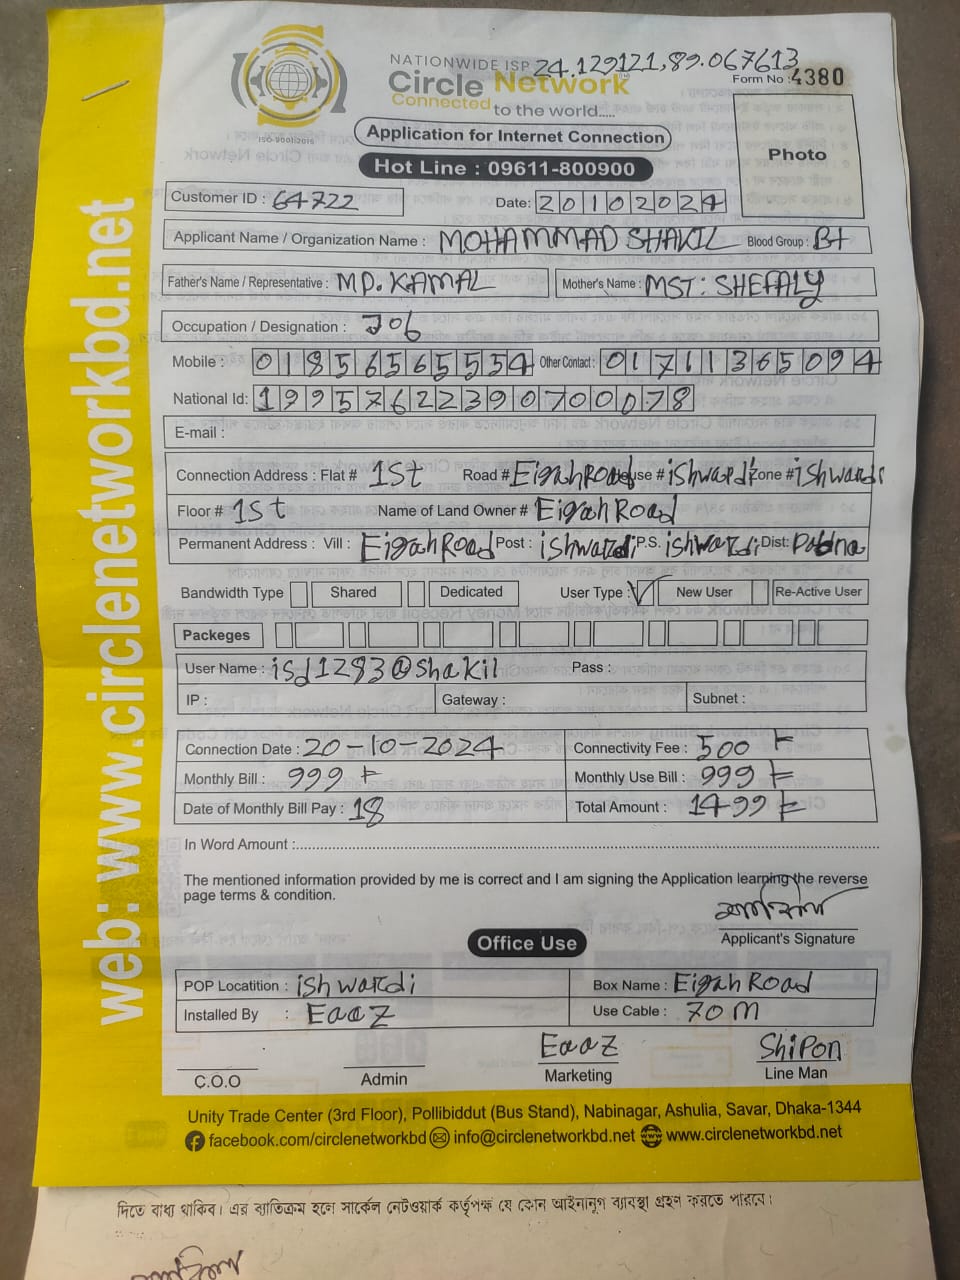 NATIONWIDE ISP 24.129121,89.067613
Circle Network
Form No : 4380
Connected to the world.....
ISO-9001:2015
Application for Internet Connection
Photo
Hot Line : 09611-800900
Customer ID : 64722 Date: 20102024
Applicant Name / Organization Name : MOHAMMAD SHAKIL Blood Group : B+
Father's Name / Representative : MD. KAMAL Mother's Name : MST: SHEFALY
Occupation / Designation : Job
Mobile : 01856565554 Other Contact : 01711365094
National Id: 19957622390700078
E-mail :
Connection Address : Flat # 1st Road # Eigah Road use # ishwardi Zone # ishwardi
Floor # 1st Name of Land Owner # Eigah Road
Permanent Address : Vill : Eigah Road Post : ishwardi P.S. ishwardi Dist: Pabna
Bandwidth Type Shared Dedicated User Type : New User Re-Active User
Packeges
User Name : isd1283@shakil Pass :
IP : Gateway : Subnet :
Connection Date : 20-10-2024 Connectivity Fee : 500
Monthly Bill : 999 Monthly Use Bill : 999
Date of Monthly Bill Pay : 18 Total Amount : 1499
In Word Amount :
The mentioned information provided by me is correct and I am signing the Application learning the reverse
page terms & condition.
Applicant's Signature
Office Use
POP Locatition : ishwardi Box Name : Eigah Road
Installed By : Eaaz Use Cable : 70 M
Eaaz Shipon
C.O.O Admin Marketing Line Man
Unity Trade Center (3rd Floor), Pollibiddut (Bus Stand), Nabinagar, Ashulia, Savar, Dhaka-1344
facebook.com/circlenetworkbd info@circlenetworkbd.net www.circlenetworkbd.net
web: www.circlenetworkbd.net
দিতে বাধ্য থাকিব। এর ব্যতিক্রম হলে সার্কেল নেটওয়ার্ক কর্তৃপক্ষ যে কোন আইনানুগ ব্যবস্থা গ্রহণ করতে পারবে।